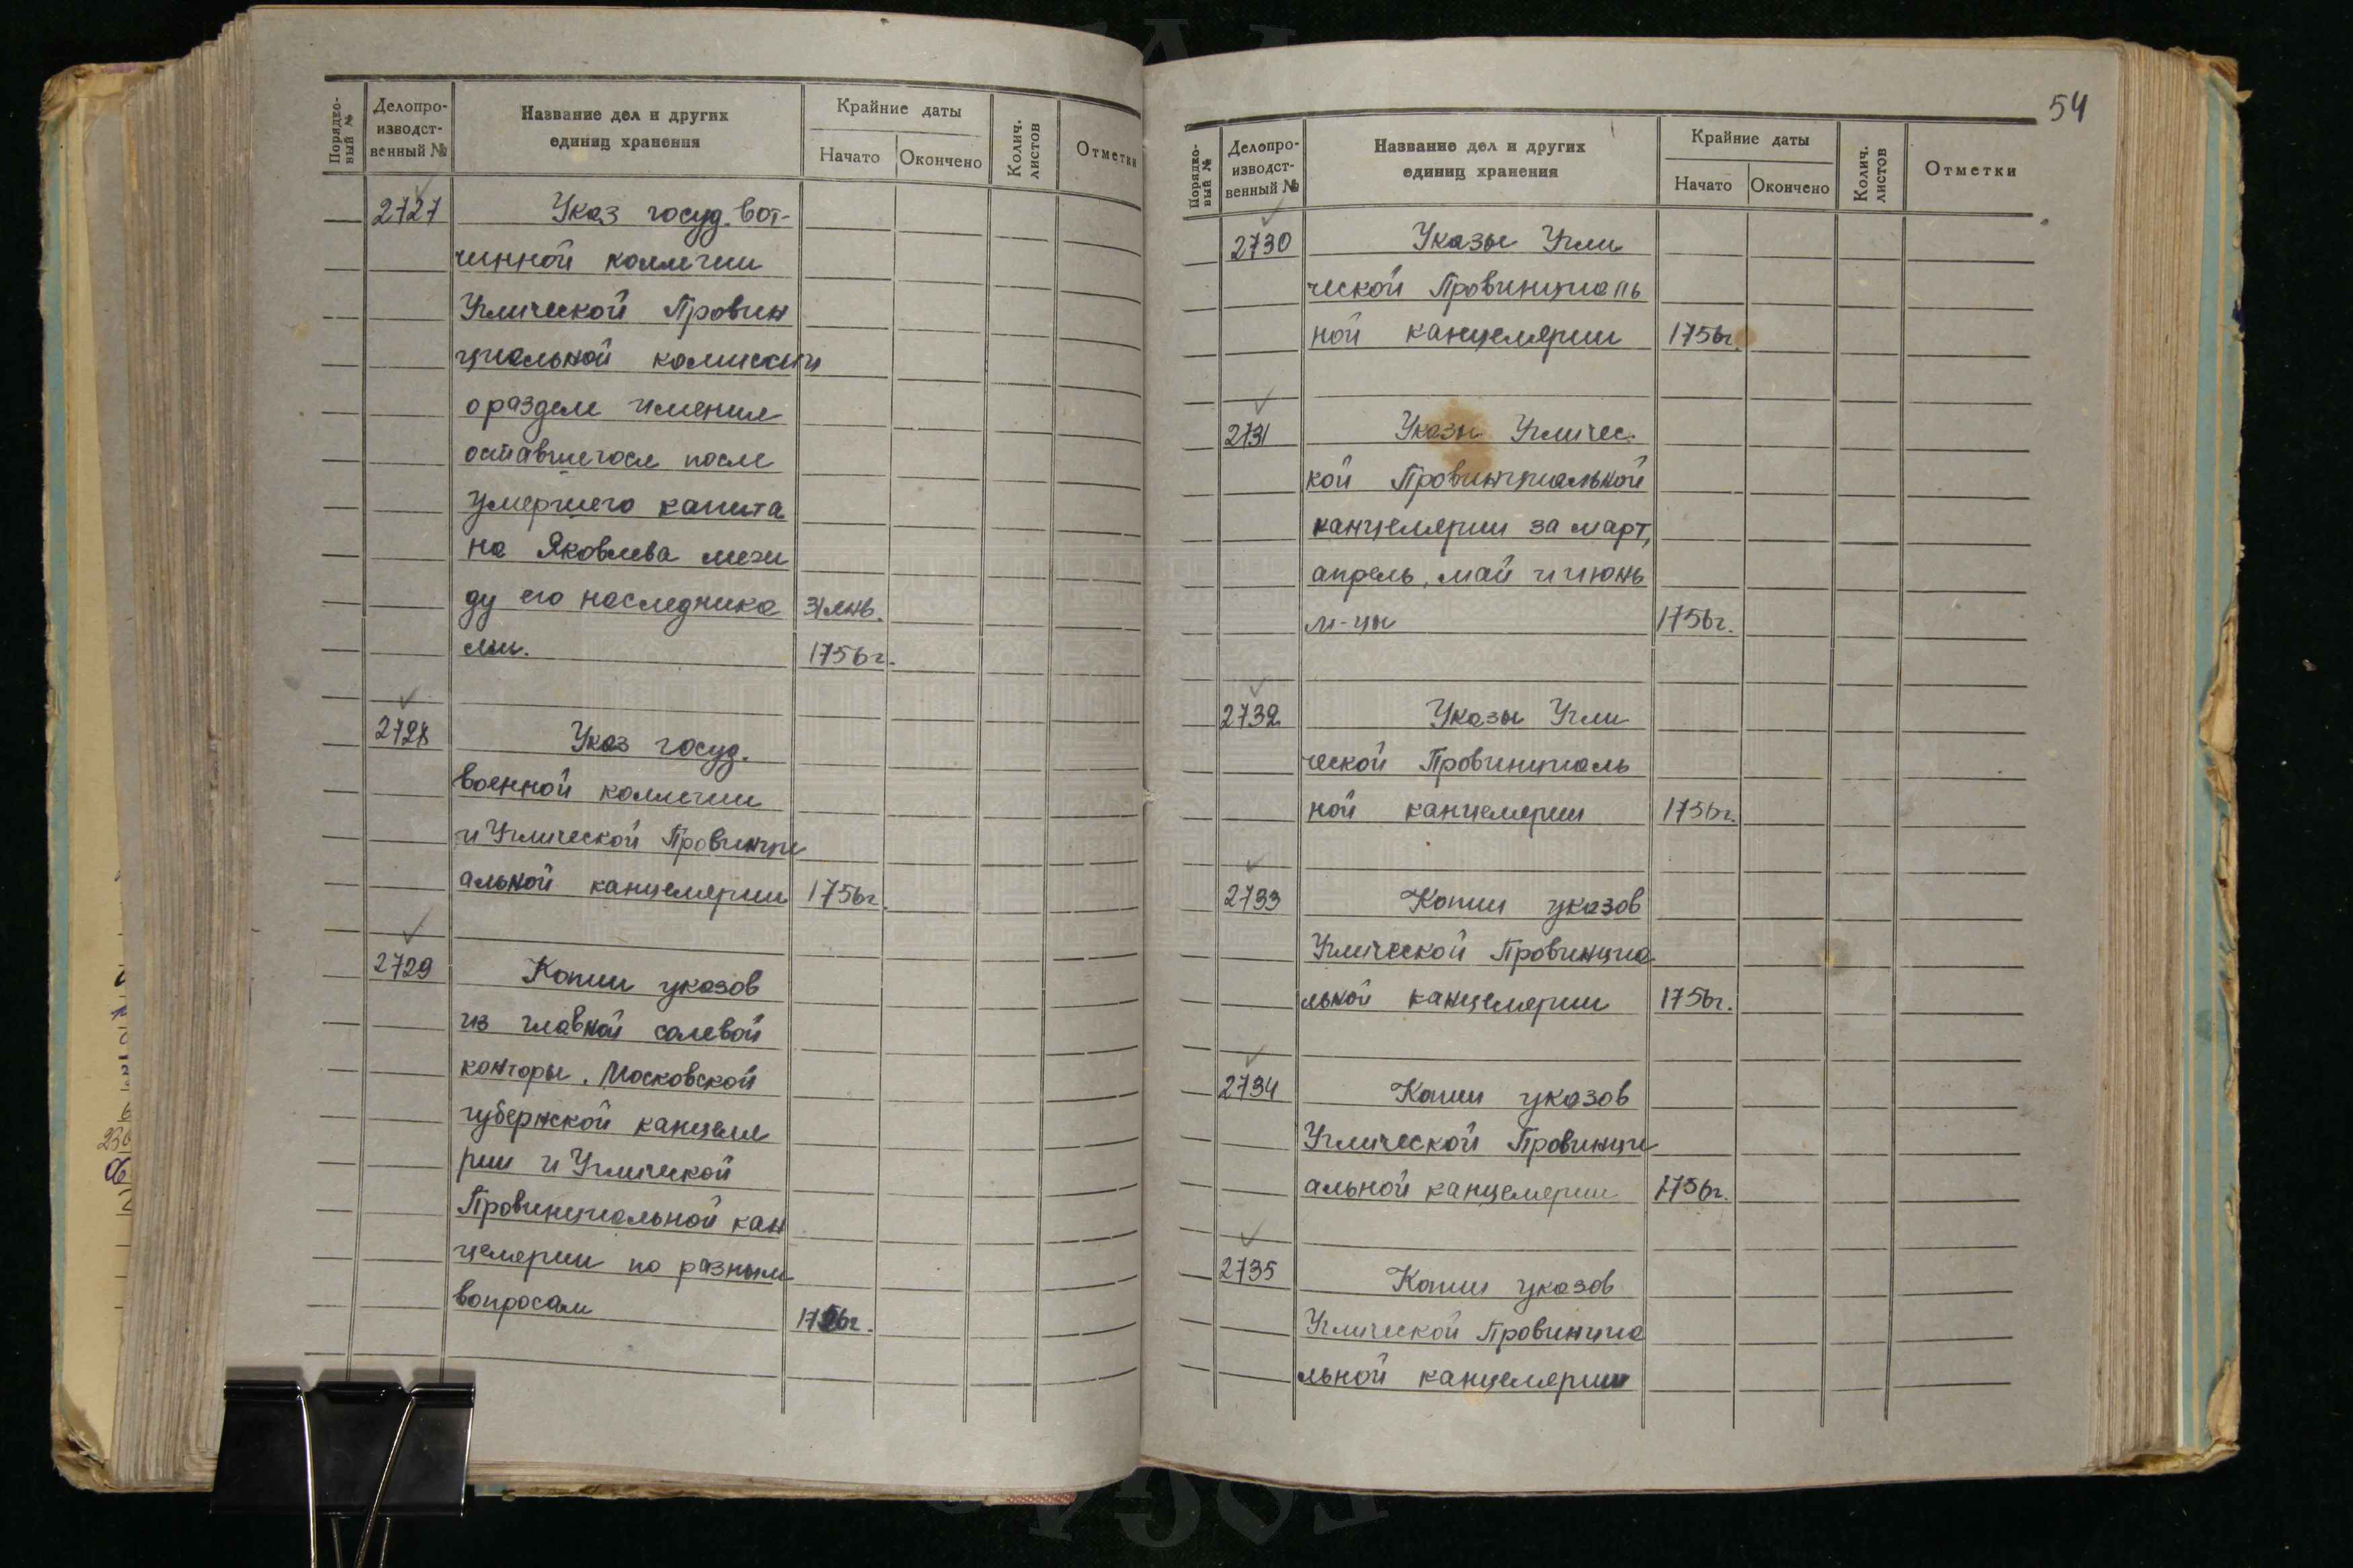 Порядко-
вый №
Делопро-
изводст-
венный №
Название дел и других
единиц хранения
Крайние даты
Начато
Окончено
Колич.
листов
Отметки
2727 Указ госуд. вот-
чинной коллегии
Угличской Провин
циальной комиссии
о разделе имения
оставшегося после
умершего капита
на Яковлева меж
ду его наследника 31 янв.
ми. 1756г.
2728 Указ госуд.
военной коллегии
и Угличской Провинци
альной канцелярии 1756г.
2729 Копии указов
из главной солевой
конторы, Московской
губернской канцеля
рии и Угличской
Провинциальной кан
целярии по разным
вопросам 1756г.
54
Порядко-
вый №
Делопро-
изводст-
венный №
Название дел и других
единиц хранения
Крайние даты
Начато
Окончено
Колич.
листов
Отметки
2730 Указы Угли
ческой Провинциаль
ной канцелярии 1756г.
2731 Указы Угличес.
кой Провинциальной
канцелярии за март,
апрель, май и июнь
м-цы 1756г.
2732 Указы Угли
ческой Провинциаль
ной канцелярии 1756г.
2733 Копии указов
Углической Провинциа
льной канцелярии 1756г.
2734 Копии указов
Углической Провинци
альной канцелярии 1756г.
2735 Копии указов
Углической Провинциа
льной канцелярии